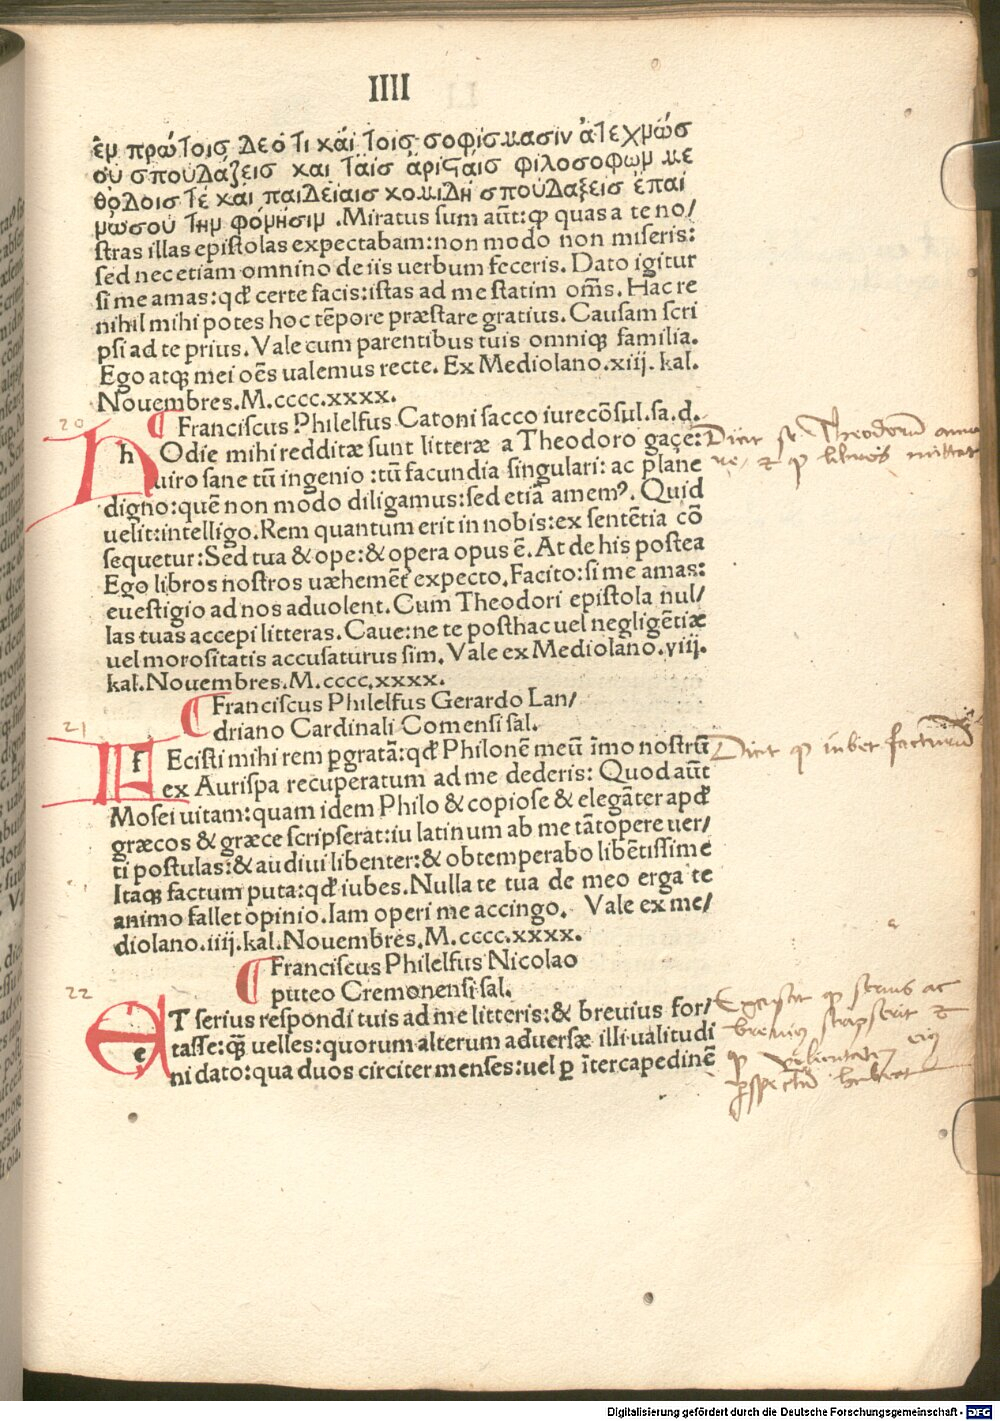 IIII
ἐμ πρώτοισ δεό τι κάι τοισ σοφίσμασιν ἀτεχμώσ
ού σπουδάζεισ και ταίσ ἀρισταισ φιλοσοφωμ με
θόδοισ τέ και παιδείαισ κομιδή σπουδαξεισ ἐπαι
μώσού τημ φόμησιμ .Miratus sum aūt:ꝙ quas a te no/
stras illas epistolas expectabam:non modo non miseris:
sed nec etiam omnino de iis uerbum feceris. Dato igitur
si me amas:qđ certe facis:istas ad me statim om̄s. Hac re
nihil mihi potes hoc tēpore præstare gratius. Causam scri
psi ad te prius. Vale cum parentibus tuis omniqꝫ familia.
Ego atqꝫ mei oēs ualemus recte. Ex Mediolano.xiij. kal.
Nouembres.M.cccc.xxxx.
20
¶ Franciscus Philelfus Catoni sacco iurecōsul.sa.d.
hOdie mihi redditæ sunt litteræ a Theodoro gaçe:
uiro sane tū ingenio :tū facundia singulari: ac plane
digno:quē non modo diligamus:sed etiā amemꝰ. Quid
uelit:intelligo.Rem quantum erit in nobis:ex sentētia cō
sequetur:Sed tua & ope:& opera opus ē. At de his postea
Ego libros nostros uæhemēt̄ expecto.Facito:si me amas:
euestigio ad nos aduolent.Cum Theodori epistola nul/
las tuas accepi litteras.Caue:ne te posthac uel negligētiæ
uel morositatis accusaturus sim. Vale ex Mediolano.viij.
kal.Nouembres.M.cccc.xxxx.
Dicit se Theodorū amare
et ꝙ libros mittat
21
¶ Franciscus Philelfus Gerardo Lan/
driano Cardinali Comensi sal.
fEcisti mihi rem ꝑgratā:qđ Philonē meū īmo nostrū
ex Aurispa recuperatum ad me dederis: Quod aūt
Mosei uitam:quam idem Philo & copiose & elegāter apđ
græcos & græce scripserat:iu latinum ab me tātopere uer/
ti postulas:& audiui libenter:& obtemperabo libētissime
Itaqꝫ factum puta:qđ iubes.Nulla te tua de meo erga te
animo fallet opinio.Iam operi me accingo. Vale ex me/
diolano.iiij.kal.Nouembres.M.cccc.xxxx.
Dicit ꝙ iubet facturū
22
¶ Franciscus Philelfus Nicolao
puteo Cremonensi sal.
eT serius respondi tuis ad me litteris:& breuius for/
tasse:qꝫ uelles:quorum alterum aduersæ illi ualitudi
ni dato:qua duos circiter menses:uel ꝑ ītercapedinē
Excusat ꝙ serius ac
breuius scripserit et
ꝙ eiꝰ
ꝑspectā habeat
Digitalisierung gefördert durch die Deutsche Forschungsgemeinschaft - DFG